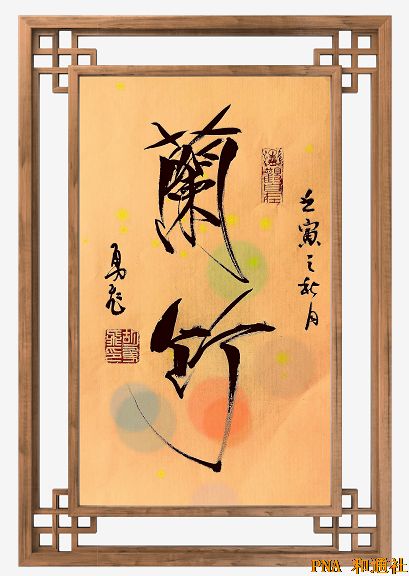 蘭竹
壬寅之秋月
勇飛
PNA 和通社